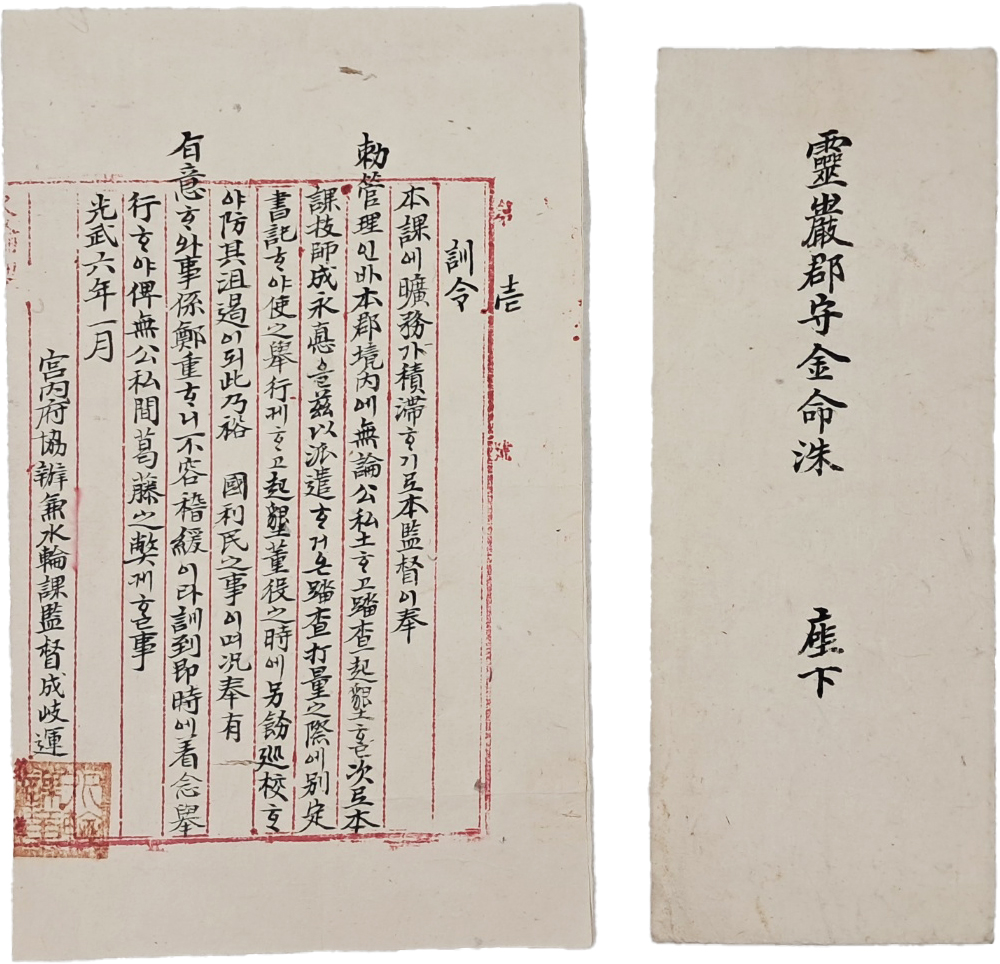 靈巖郡守金命洙 座下
第 壹 號
訓令
本課에曠務가積滯ᄒᆞ기로本監督이奉
勅管理인바本郡境內에無論公私土ᄒᆞ고踏查起墾ᄒᆞᆯ次로本
課技師成永悳을玆以派遣ᄒᆞ거온踏查打量之際에別定
書記ᄒᆞ야使之擧行케ᄒᆞ고起墾董役之時에另飭廵校ᄒᆞ
야防其沮遏이되此乃裕 國利民之事이며况奉有
旨意ᄒᆞ와事係鄭重ᄒᆞ니不容稽緩이라訓到即時에着念擧
行ᄒᆞ야俾無公私間葛藤之獘케ᄒᆞᆯ事
光武六年一月
宮內府協辦兼水輪課監督成岐運